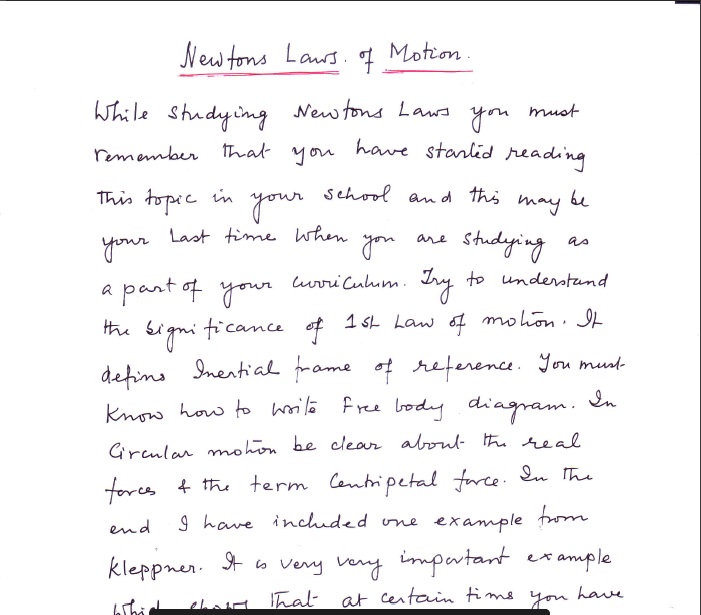 Newtons Laws. of Motion.
While studying Newtons Laws you must
remember that you have started reading
this topic in your school and this may be
your last time when you are studying as
a part of your curriculum. Try to understand
the significance of 1st Law of motion. It
defins Inertial frame of reference. You must
know how to write free body diagram. In
Circular motion be clear about the real
forces & the term Centripetal force. In the
end I have included one example from
Kleppner. It is very very important example
that at certain tims you have